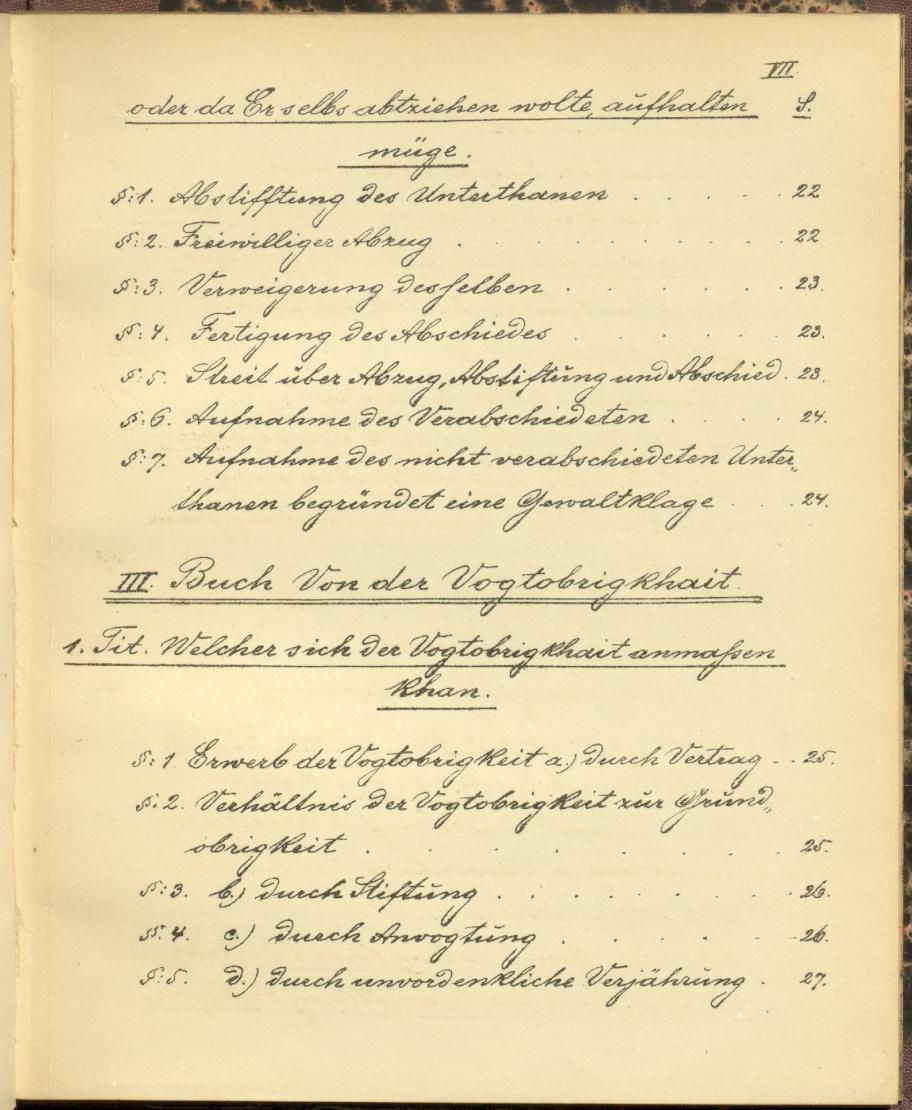 VII.
oder da Er selbs abtziehen wolte, aufhalten S.
müge.
§:1. Abstifftung des Unterthanen . . . . . 22
§:2. Freiwilliger Abzug . . . . . . . . 22
§:3. Verweigerung desselben . . . . . . 23.
§:4. Fertigung des Abschiedes . . . . . 23.
§:5. Streit über Abzug, Abstiftung und Abschied . 23.
§:6. Aufnahme des Verabschiedeten . . . . 24.
§:7. Aufnahme des nicht verabschiedeten Unter„
thanen begründet eine Gewaltklage . . . 24.
III. Buch Von der Vogtobrigkhait.
1. Tit. Welcher sich der Vogtobrigkhait anmaßen
khan.
§:1 Erwerb der Vogtobrigkeit a.) durch Vertrag . . 25.
§:2. Verhältnis der Vogtobrigkeit zur Grund„
obrigkeit . . . . . . . . 25.
§:3. b.) durch Stiftung . . . . . . . 26.
§:4. c.) durch Anvogtung . . . . . . 26.
§:5. d.) durch unvordenkliche Verjährung . 27.